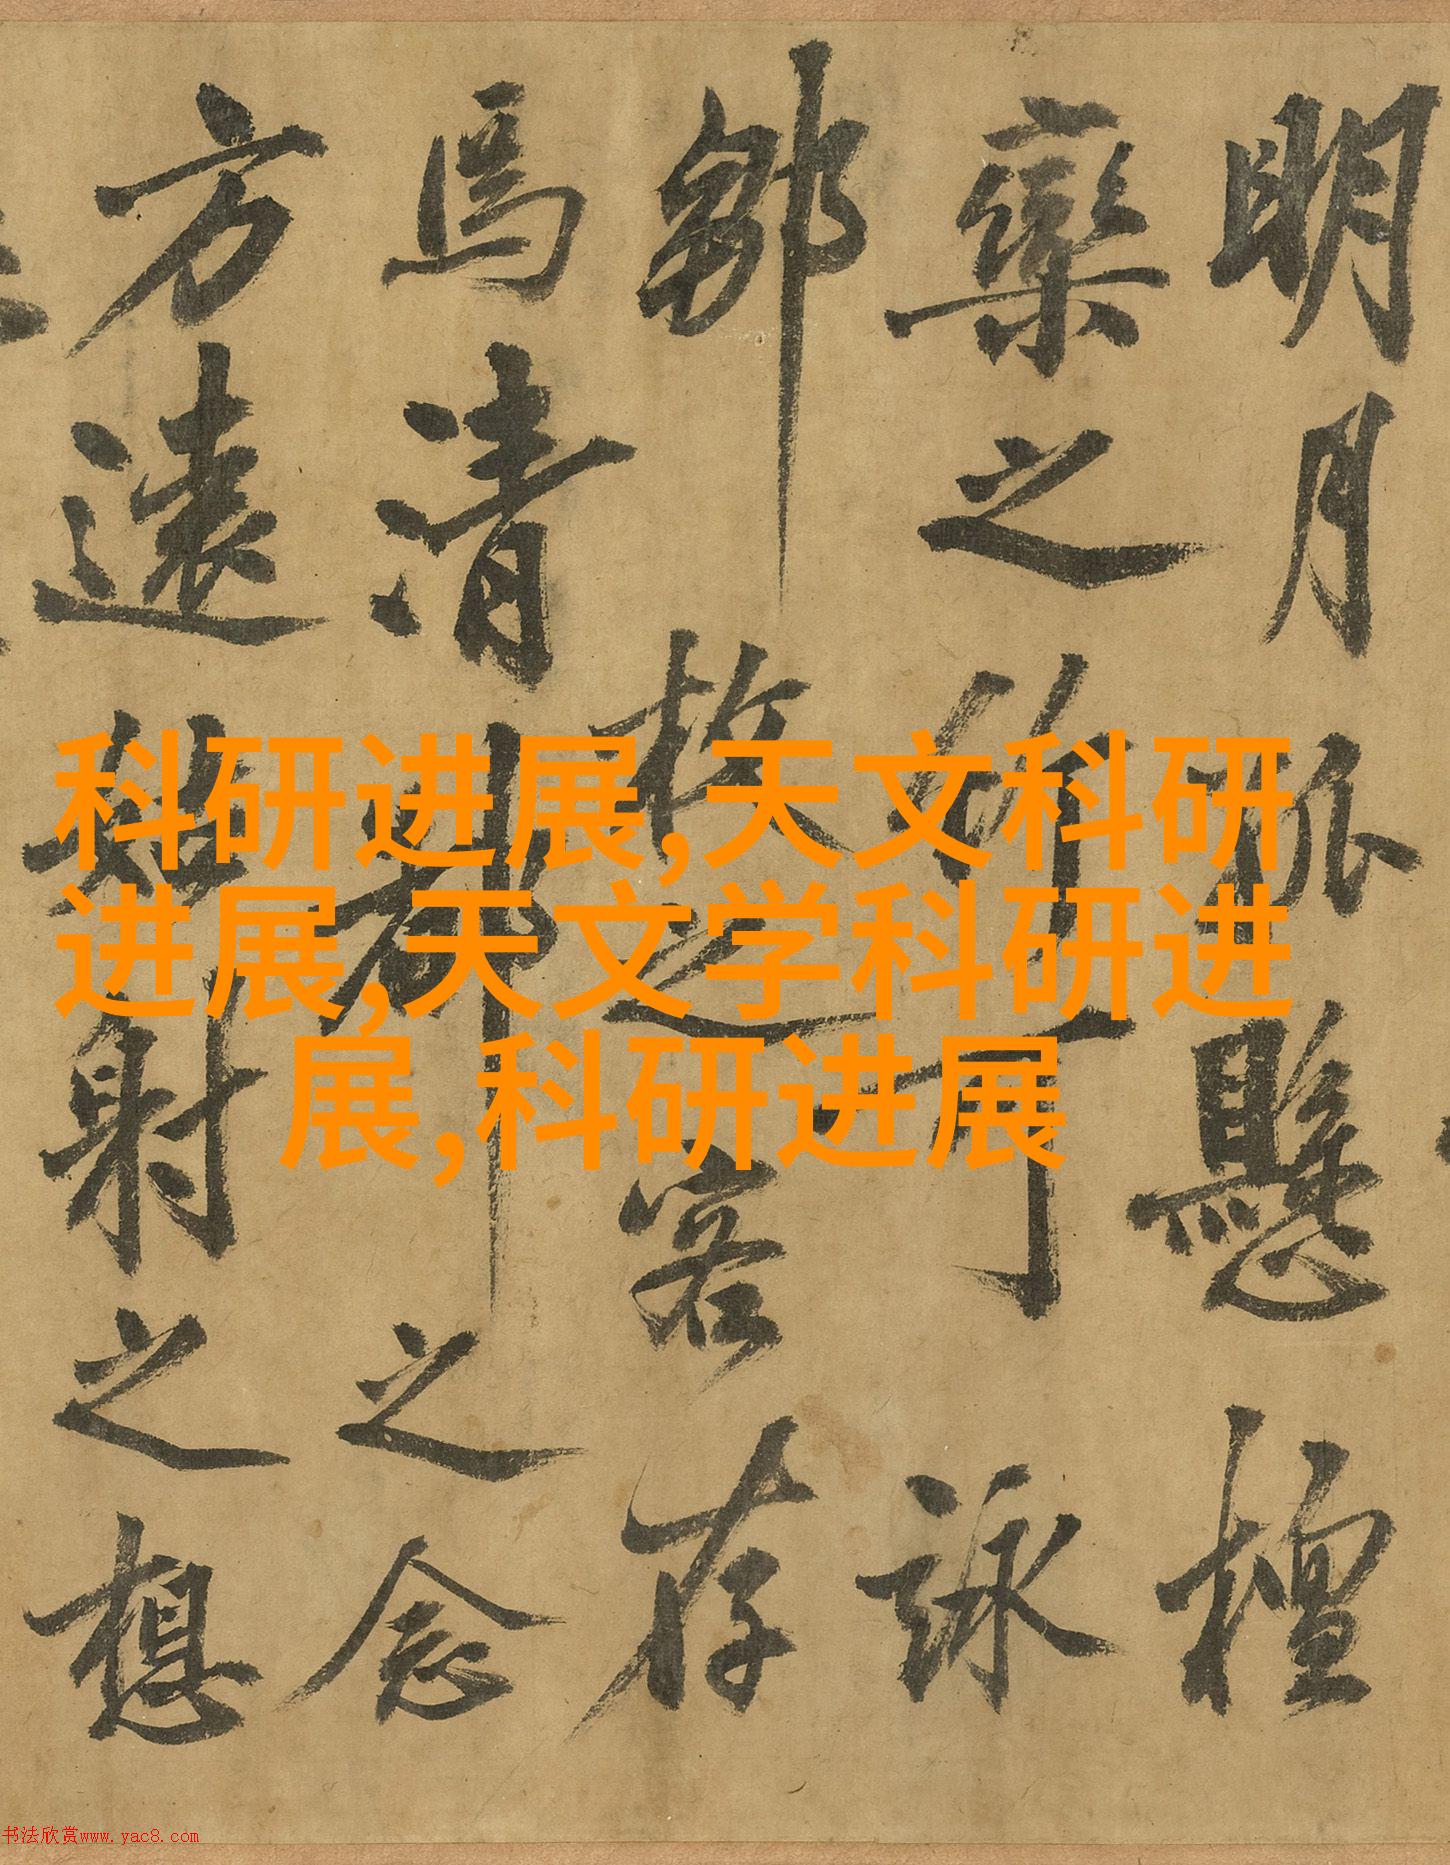 明月孤懸檀
欒之作可詠
鄒枚之客存
焉清都之念
方遠姑射之想
科研进展,天文科研
进展,天文学科研进
展,科研进展
书法欣赏www.yac8.com